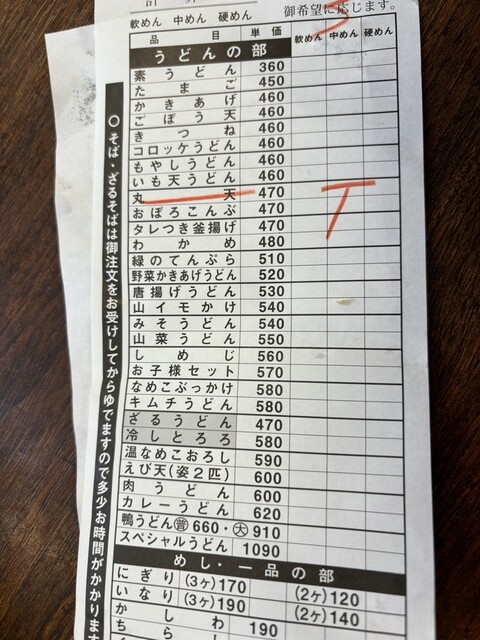 軟めん 中めん 硬めん 御希望に応じます。
品目 単価 軟めん 中めん 硬めん
うどんの部
素うどん 360
たまご 450
かきあげ 460
ごぼう天 460
きつね 460
コロッケうどん 460
もやしうどん 460
いも天うどん 460
丸天 470
おぼろこんぶ 470
タレつき釜揚げ 470
わかめ 480
緑のてんぷら 510
野菜かきあげうどん 520
唐揚げうどん 530
山イモかけ 540
みそうどん 540
山菜うどん 550
しめじ 560
お子様セット 570
なめこぶっかけ 580
キムチうどん 580
ざるうどん 470
冷しとろろ 580
温なめこおろし 590
えび天(姿2匹) 600
肉うどん 600
カレーうどん 620
鴨うどん㊟660・㊅910
スペシャルうどん 1090
めし・一品の部
にぎり (3ヶ)170 (2ヶ)120
いなり (3ヶ)190 (2ヶ)140
かしわ 190
ちらし
○そば・ざるそばは御注文をお受けしてからゆでますので多少お時間がかかります